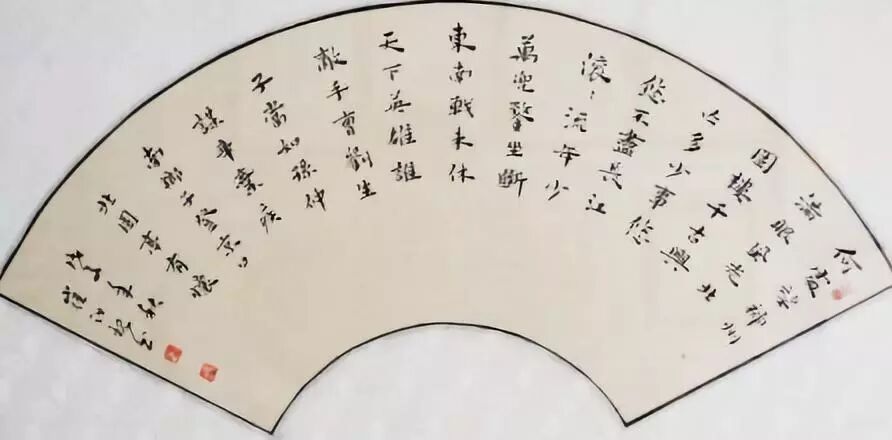 何處望神州
滿眼風光北
固樓千古興
亡多少事悠
悠不盡長江
滾〻流年少
萬兜鍪坐斷
東南戰未休
天下英雄誰
敵手曹劉生
子當如孫仲
謀辛棄疾
南鄉子登京口
北固亭有懷
年秋